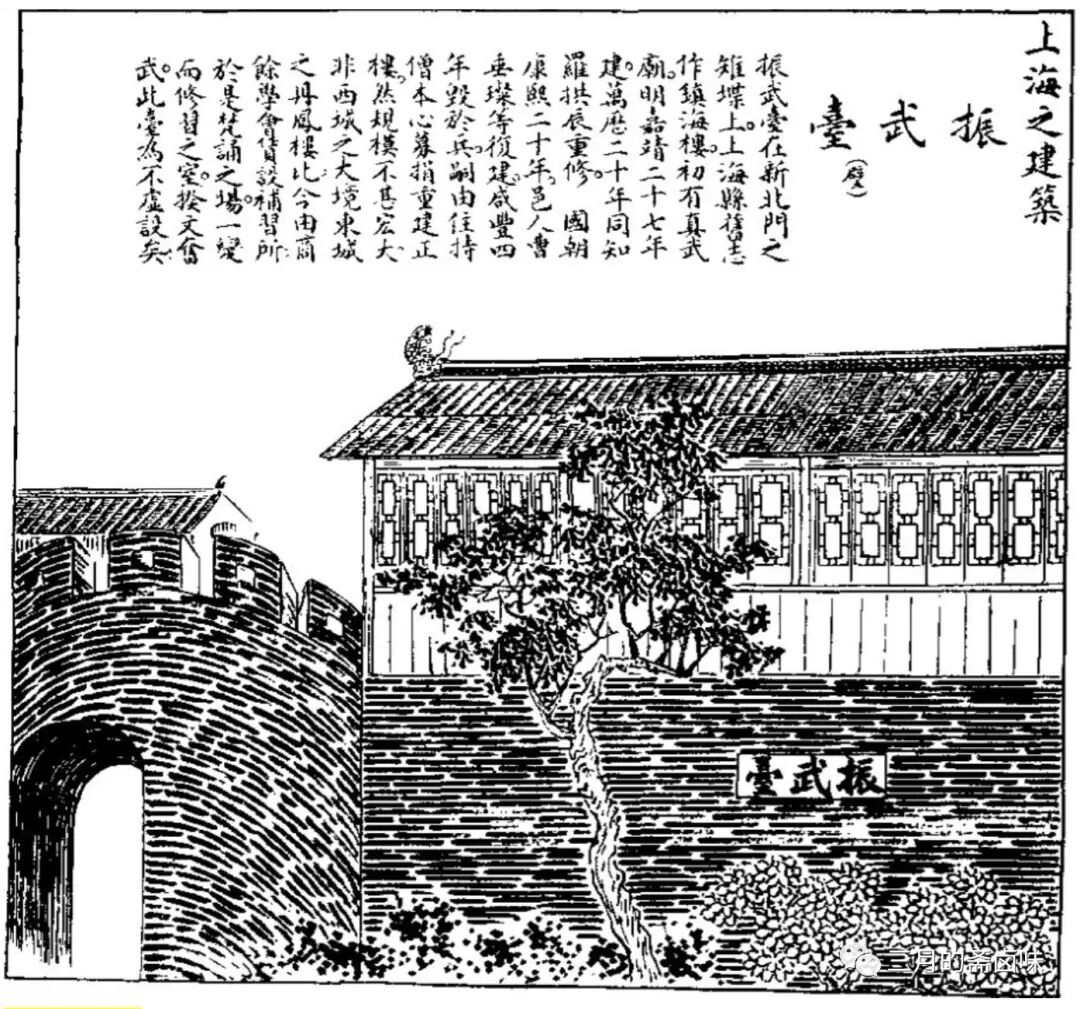 上海之建築
振武臺
振武臺在新北門之
雉堞上。上海縣舊志
作鎮海樓。初有真武
廟。明嘉靖二十七年
建。萬歷二十年同知
羅拱辰重修。 國朝
康熙二十年。邑人曹
垂璨等復建。咸豐四
年毀於兵。嗣由住持
僧本心募捐重建正
樓。然規模不甚宏大。
非西城之大境東城
之丹鳳樓比。今由商
餘學會賃設補習所。
於是梵誦之場。一變
而修習之室。揆文奮
武。此臺為不虛設矣。
振武臺
三月的斋卤味